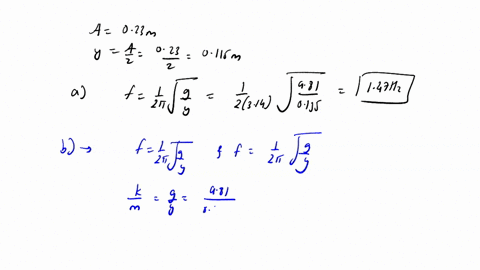 A = 0.23m
y = A/2 = 0.23/2 = 0.115m
a) f = 1/2π √g/y = 1/2(3.14) √9.81/0.135 = 1.47Hz
b) → f = 1/2π √g/y & f = 1/2π √g/y
k/m = g/y = 9.81/